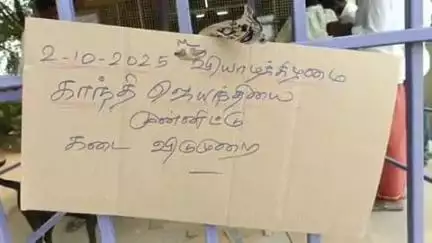 2-10-2025 வியாழக்கிழமை
காந்தி ஜெயந்தியை
முன்னிட்டு
கடை விடுமுறை